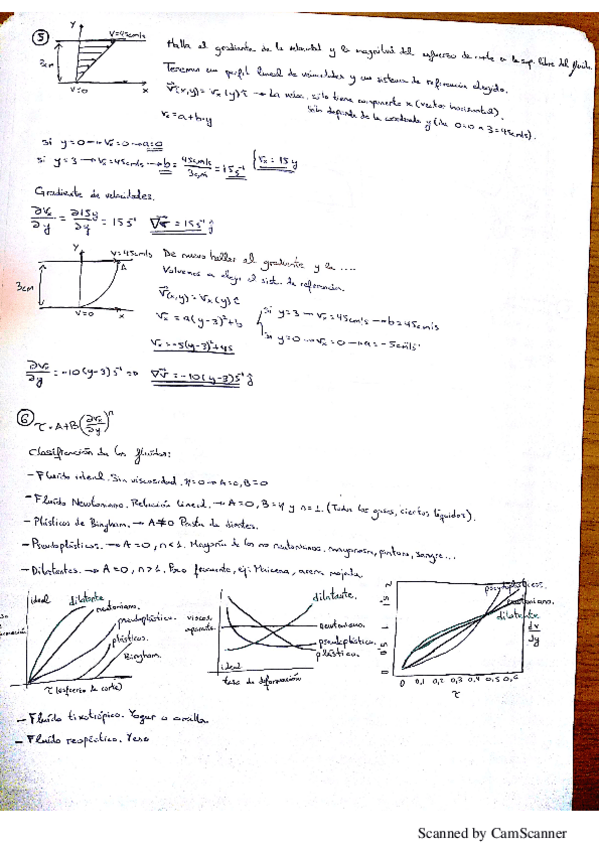 5
Y
V=45cm/s
3cm
V=0
x
Halla el gradiente de la velocidad y la magnitud del esfuerzo de corte en la sup. libre del fluido.
Tenemos un perfil lineal de velocidades y un sistema de referencia elegido.
V(x,y) = Vx(y)i → La veloc. sólo tiene componente x (vector horizontal).
sólo depende de la coordenada y (de 0=0 a 3=45cm/s).
Vx = a+b·y
si y=0 → Vx=0 → a=0
si y=3 → Vx=45cm/s → b= 45cm/s / 3cm = 15s⁻¹ { Vx = 15y
Gradiente de velocidades.
∂Vx/∂y = ∂15y/∂y = 15s⁻¹ ∇v = 15s⁻¹ j
Y
V=45cm/s
A
3cm
V=0
x
De nuevo hallar el gradiente y la ....
Volvemos a elegir el sist. de referencia
V(x,y) = Vx(y)i
Vx = a(y-3)²+b
si y=3 → Vx=45cm/s → b=45cm/s
si y=0 → Vx=0 → a=-5cm/s
Vx = -5(y-3)²+45
∂Vx/∂y = -10(y-3)s⁻¹ ⇒ ∇v = -10(y-3)s⁻¹ j
6
τ = A+B(∂Vx/∂y)ⁿ
Clasificación de los fluidos:
- Fluido ideal. Sin viscosidad. η=0 → A=0, B=0
- Fluido Newtoniano. Relación lineal. → A=0, B=η y n=1. (Todos los gases, ciertos líquidos).
- Plásticos de Bingham. → A≠0 Pasta de dientes.
- Pseudoplásticos. → A=0, n<1. Mayoría de los no neutonianos. pintura, sangre...
- Dilatantes. → A=0, n>1. Poco frecuente, ej: Maicena, arena mojada
ideal
dilatante
newtoniano.
pseudoplástico.
plásticos.
Bingham.
τ (esfuerzo de corte)
viscos.
aparente
dilatante.
newtoniano.
pseudoplástico.
plástico.
ideal
tasa de deformación
pseudoplásticos.
neutoniano.
dilatante
dv
dy
0 0,5 1 1,5 2
0 0,1 0,2 0,3 0,4 0,5 0,6
τ
- Fluido tixotrópico. Yogur o arcilla
- Fluido reopéctico. Yeso
Scanned by CamScanner